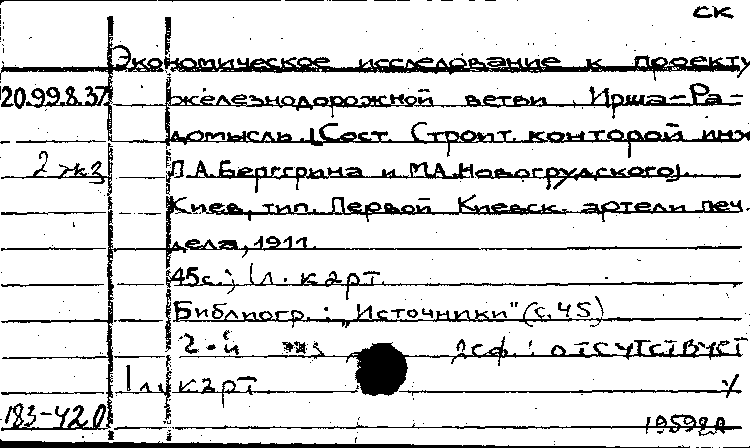 СК
Экономическое исследование к проекту
20.99.8.37 железнодорожной ветви Ирша-Ра-
домысль. [Сост. Строит. конторой инж
2 экз Л.А.Бергрина и М.А.Новогрудского].
Киев, тип. Первой Киевск. артели печ.
дела, 1911.
45с.; 1 л. карт.
Библиогр.: „Источники" (с.45)
2-й экз деф.: отсутствует
1 л. карт.
183-420 19592А